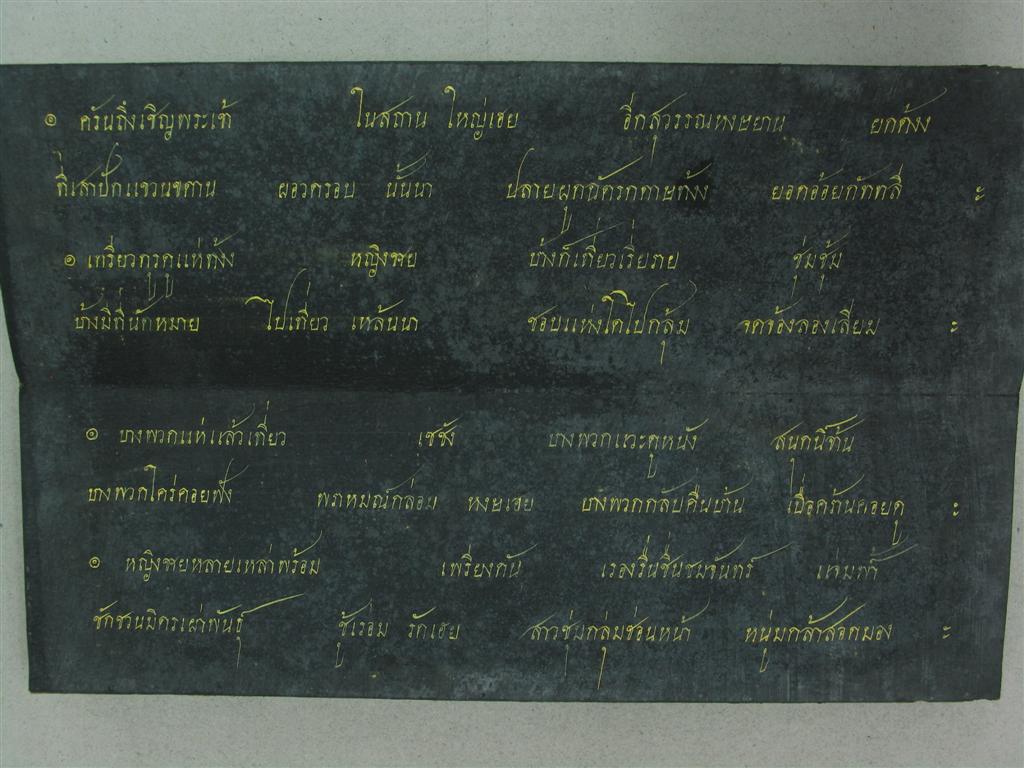 ๏ ครั้นถึงเชิญพระเจ้า ในสถาน ใหญ่เฮย อีกสุวรรณหงษยาน ยกตั้งง
ที่เสาปักแขวนขดาน ผอวครอบ นั้นนา ปลายผูกฉัครกทาษทังง ยอดอ้อยกัททลี ะ
๏ เกรียวกรูดูแห่ทั้ง หญิงชาย บ้างก็เที่ยวเรี่ยราย ชุ่มชุ้ม
บ้างมีที่นัดหมาย ไปเที่ยว เหล้นนา ชอบแห่งใดไปกลุ้ม จดจ้องลองเลียม ะ
๏ บางพวกแห่แล้วเที่ยว เซซัง บางพวกแวะดูหนัง สนุกนี้
บางพวกใคร่คอยฟัง พราหมณ์กล่อม หงษเฮย บางพวกกลับคืนบ้าน เบื่อคร้านคอยดู ะ
๏ หญิงชายหลายเหล่าพร้อม เพรียงกัน เรองรื่นชื่นชมจันทร์ แจ่มกล้า
ชักชวนมิตรเผ่าพันธุ์ ชู้เร่อม รักเฮย สาวชุ่มกลุ่มซ่อนหน้า หนุ่มกล้าสอดมอง ะ